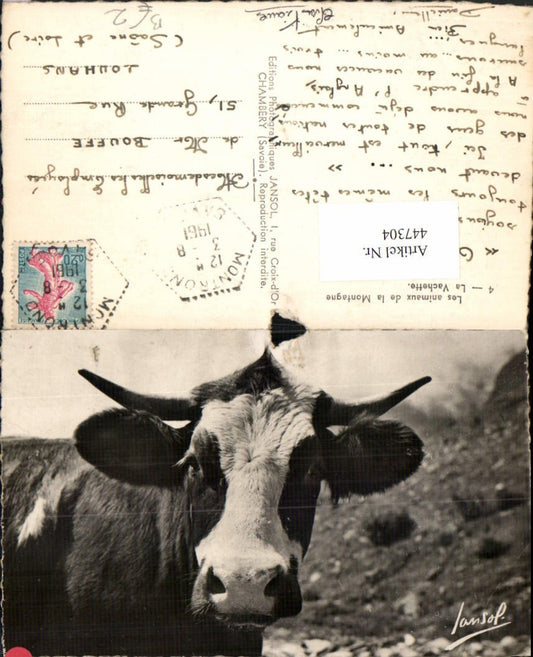 Les animaux de la Montagne
4 — La Vachette.
Artikel Nr.
447304
toujours les mêmes têtes
devant nous ... »
Ici, tout est merveilleux
des gens de toutes nations
nous avons déjà commencé
à apprendre l'Anglais
A la fin des vacances nous
saurons au moins trois
langues ...
Bien Amicalement
Danielle
Editions Photographiques JANSOL, 1, rue Croix-d'Or
CHAMBERY (Savoie). Reproduction interdite.
MONTROND
12 H
3 - 8
1961
SAVOIE
MONTROND
12 H
3 - 8
1961
SAVOIE
0.20
Mesdemoiselles les Employées
de Mr BOUFFE
51, Grande Rue
LOUHANS
(Saône et Loire)
B/2
Jansol.